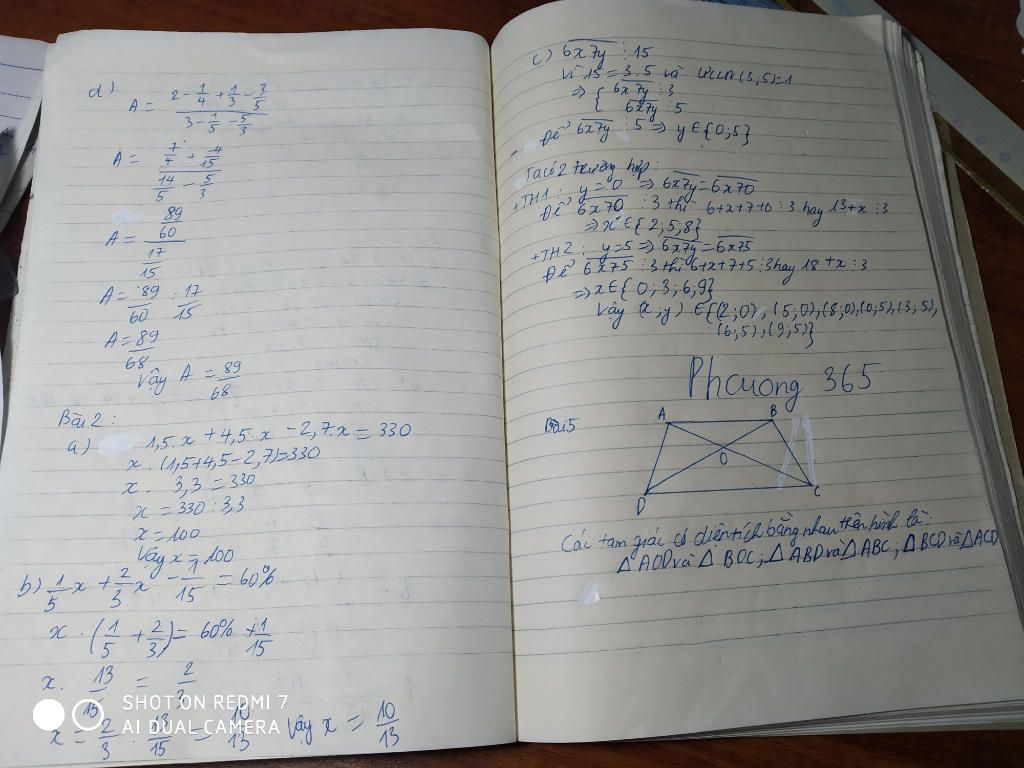 d)
A = (2 - 1/4 + 1/3 - 3/5) / (3 - 1/5 - 5/3)
A = (7/4 + -4/15) / (14/5 - 5/3)
A = (89/60) / (17/15)
A = 89/60 : 17/15
A = 89/68
Vậy A = 89/68
Bài 2 :
a) 1,5.x + 4,5.x - 2,7.x = 330
x.(1,5+4,5-2,7)=330
x. 3,3 = 330
x = 330 : 3,3
x = 100
Vậy x = 100
b) 1/5 x + 2/3 x - 1/15 = 60%
x . (1/5 + 2/3) = 60% + 1/15
x. 13/15 = 2/3
x = 2/3 : 13/15 = 10/13 Vậy x = 10/13
SHOT ON REDMI 7
AI DUAL CAMERA
c) 6x7y ⋮ 15
Vì 15 = 3.5 và ƯCLN(3;5)=1
⇒ { 6x7y ⋮ 3
6x7y ⋮ 5
- Để 6x7y ⋮ 5 ⇒ y ∈ {0;5}
Ta có 2 trường hợp :
+TH1 : y = 0 ⇒ 6x7y = 6x70
Để 6x70 ⋮ 3 thì 6+x+7+0 ⋮ 3 hay 13+x ⋮ 3
⇒ x ∈ {2;5;8}
+TH2 : y=5 ⇒ 6x7y = 6x75
Để 6x75 ⋮ 3 thì 6+x+7+5 ⋮ 3 hay 18+x ⋮ 3
⇒ x ∈ {0;3;6;9}
Vậy (x;y) ∈ {(2;0), (5;0),(8;0),(0;5),(3;5),
(6;5),(9;5)}
Phcuong 365
Bài 5
A B
O
D C
Các tam giác có diện tích bằng nhau trên hình là:
Δ AOD và Δ BOC; Δ ABD và Δ ABC; Δ BCD và Δ ACD